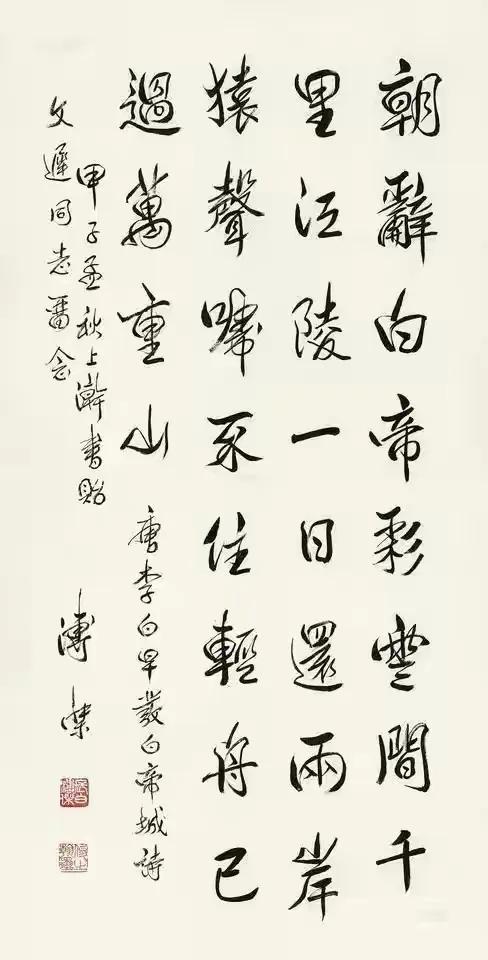 朝辭白帝彩雲間千
里江陵一日還兩岸
猿聲啼不住輕舟已
過萬重山
唐李白早發白帝城詩
甲子孟秋上澣書貽
文遲同志畱念
溥傑